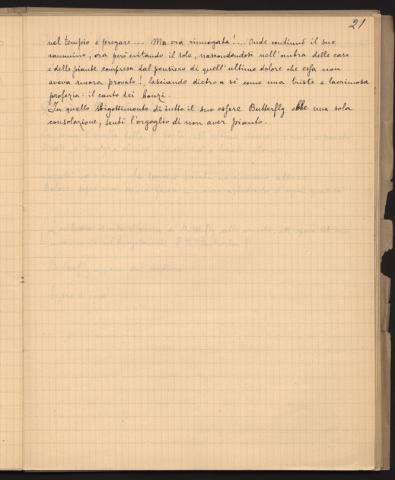 21
nel tempio e pregare.... Ma era rinnegata!... Onde continuò il suo
cammino, ora però evitando il sole, nascondendosi nell'ombra delle case
e delle piante compresa dal pensiero di quell'ultimo dolore che essa non
aveva ancora provato!, lasciando dietro a sé come una triste e lacrimosa
profezia: il canto dei bonzi.
In quello sbigottimento di tutto il suo essere Butterfly ebbe una sola
consolazione, sentì l'orgoglio di non aver pianto.